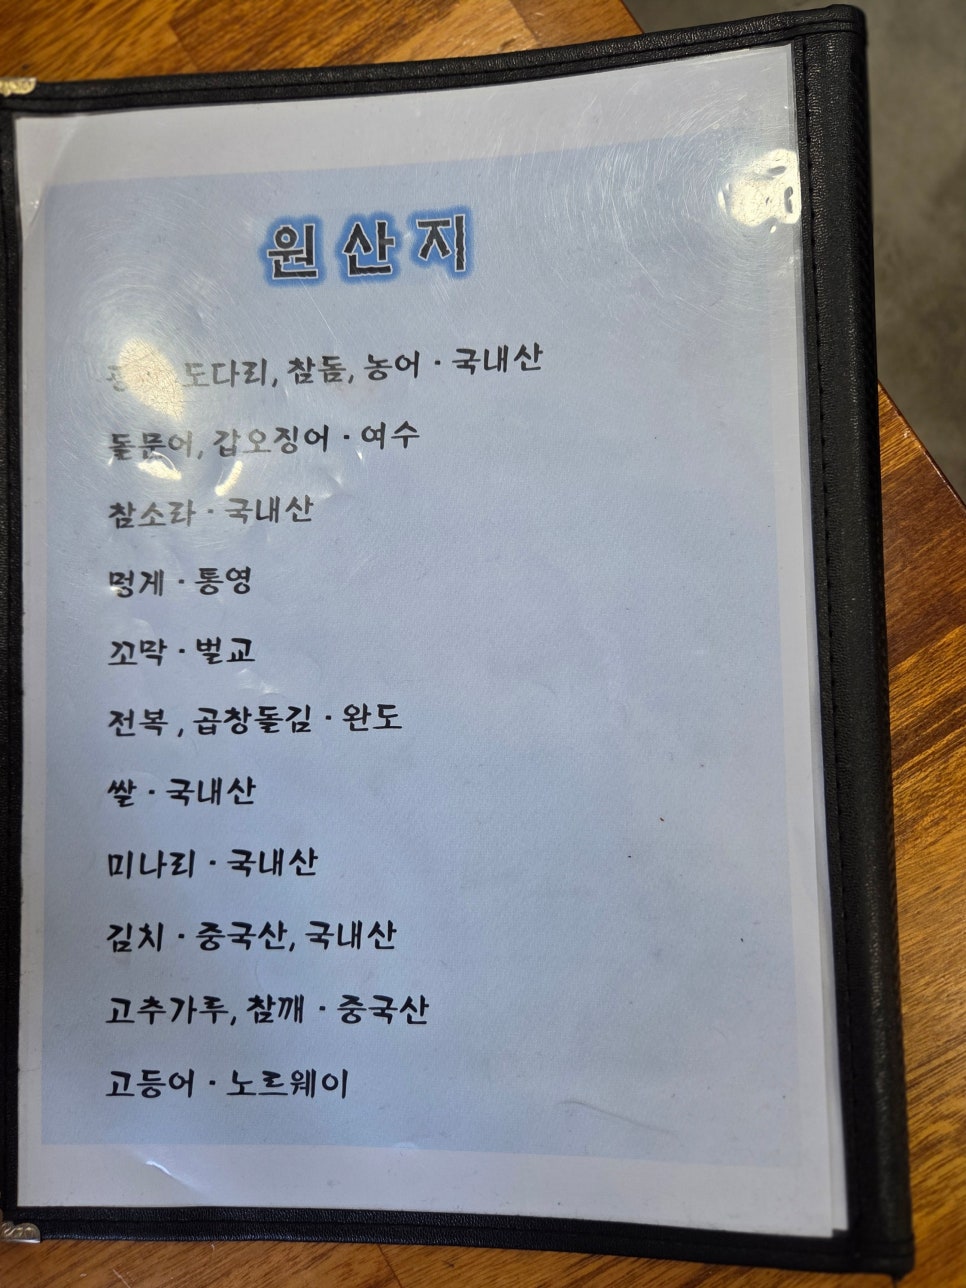 원산지
도다리, 참돔, 농어 · 국내산
돌문어, 갑오징어 · 여수
참소라 · 국내산
멍게 · 통영
꼬막 · 벌교
전복, 곱창돌김 · 완도
쌀 · 국내산
미나리 · 국내산
김치 · 중국산, 국내산
고추가루, 참깨 · 중국산
고등어 · 노르웨이